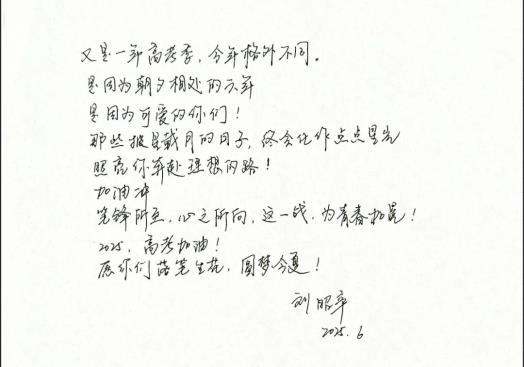 又是一年高考季，今年格外不同。
是因为朝夕相处的六年
是因为可爱的你们！
那些披星戴月的日子，终会化作点点星光
照亮你奔赴理想的路！
加油冲
笔锋所至，心之所向，这一战，为青春加冕！
2025，高考加油！
愿你们落笔生花，圆梦今夏！
刘昭辛
2025.6